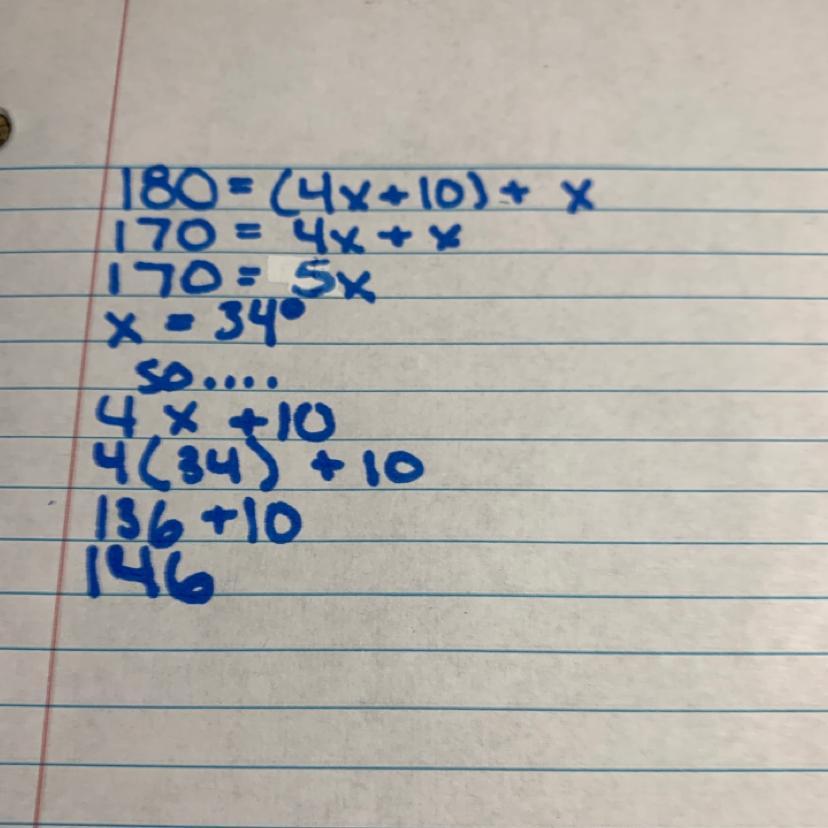 180 = (4x+10) + x
170 = 4x + x
170 = 5x
x = 34°
so....
4 x +10
4(34) + 10
136 +10
146